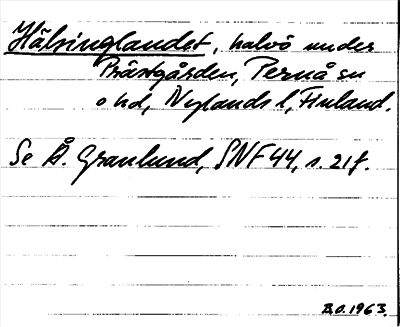 Hälsinglandet, halvö under
Prästgården, Pernå sn
o hd, Nylands l, Finland.
Se Å. Granlund, SNF 44, s. 21f.
B.O. 1963.